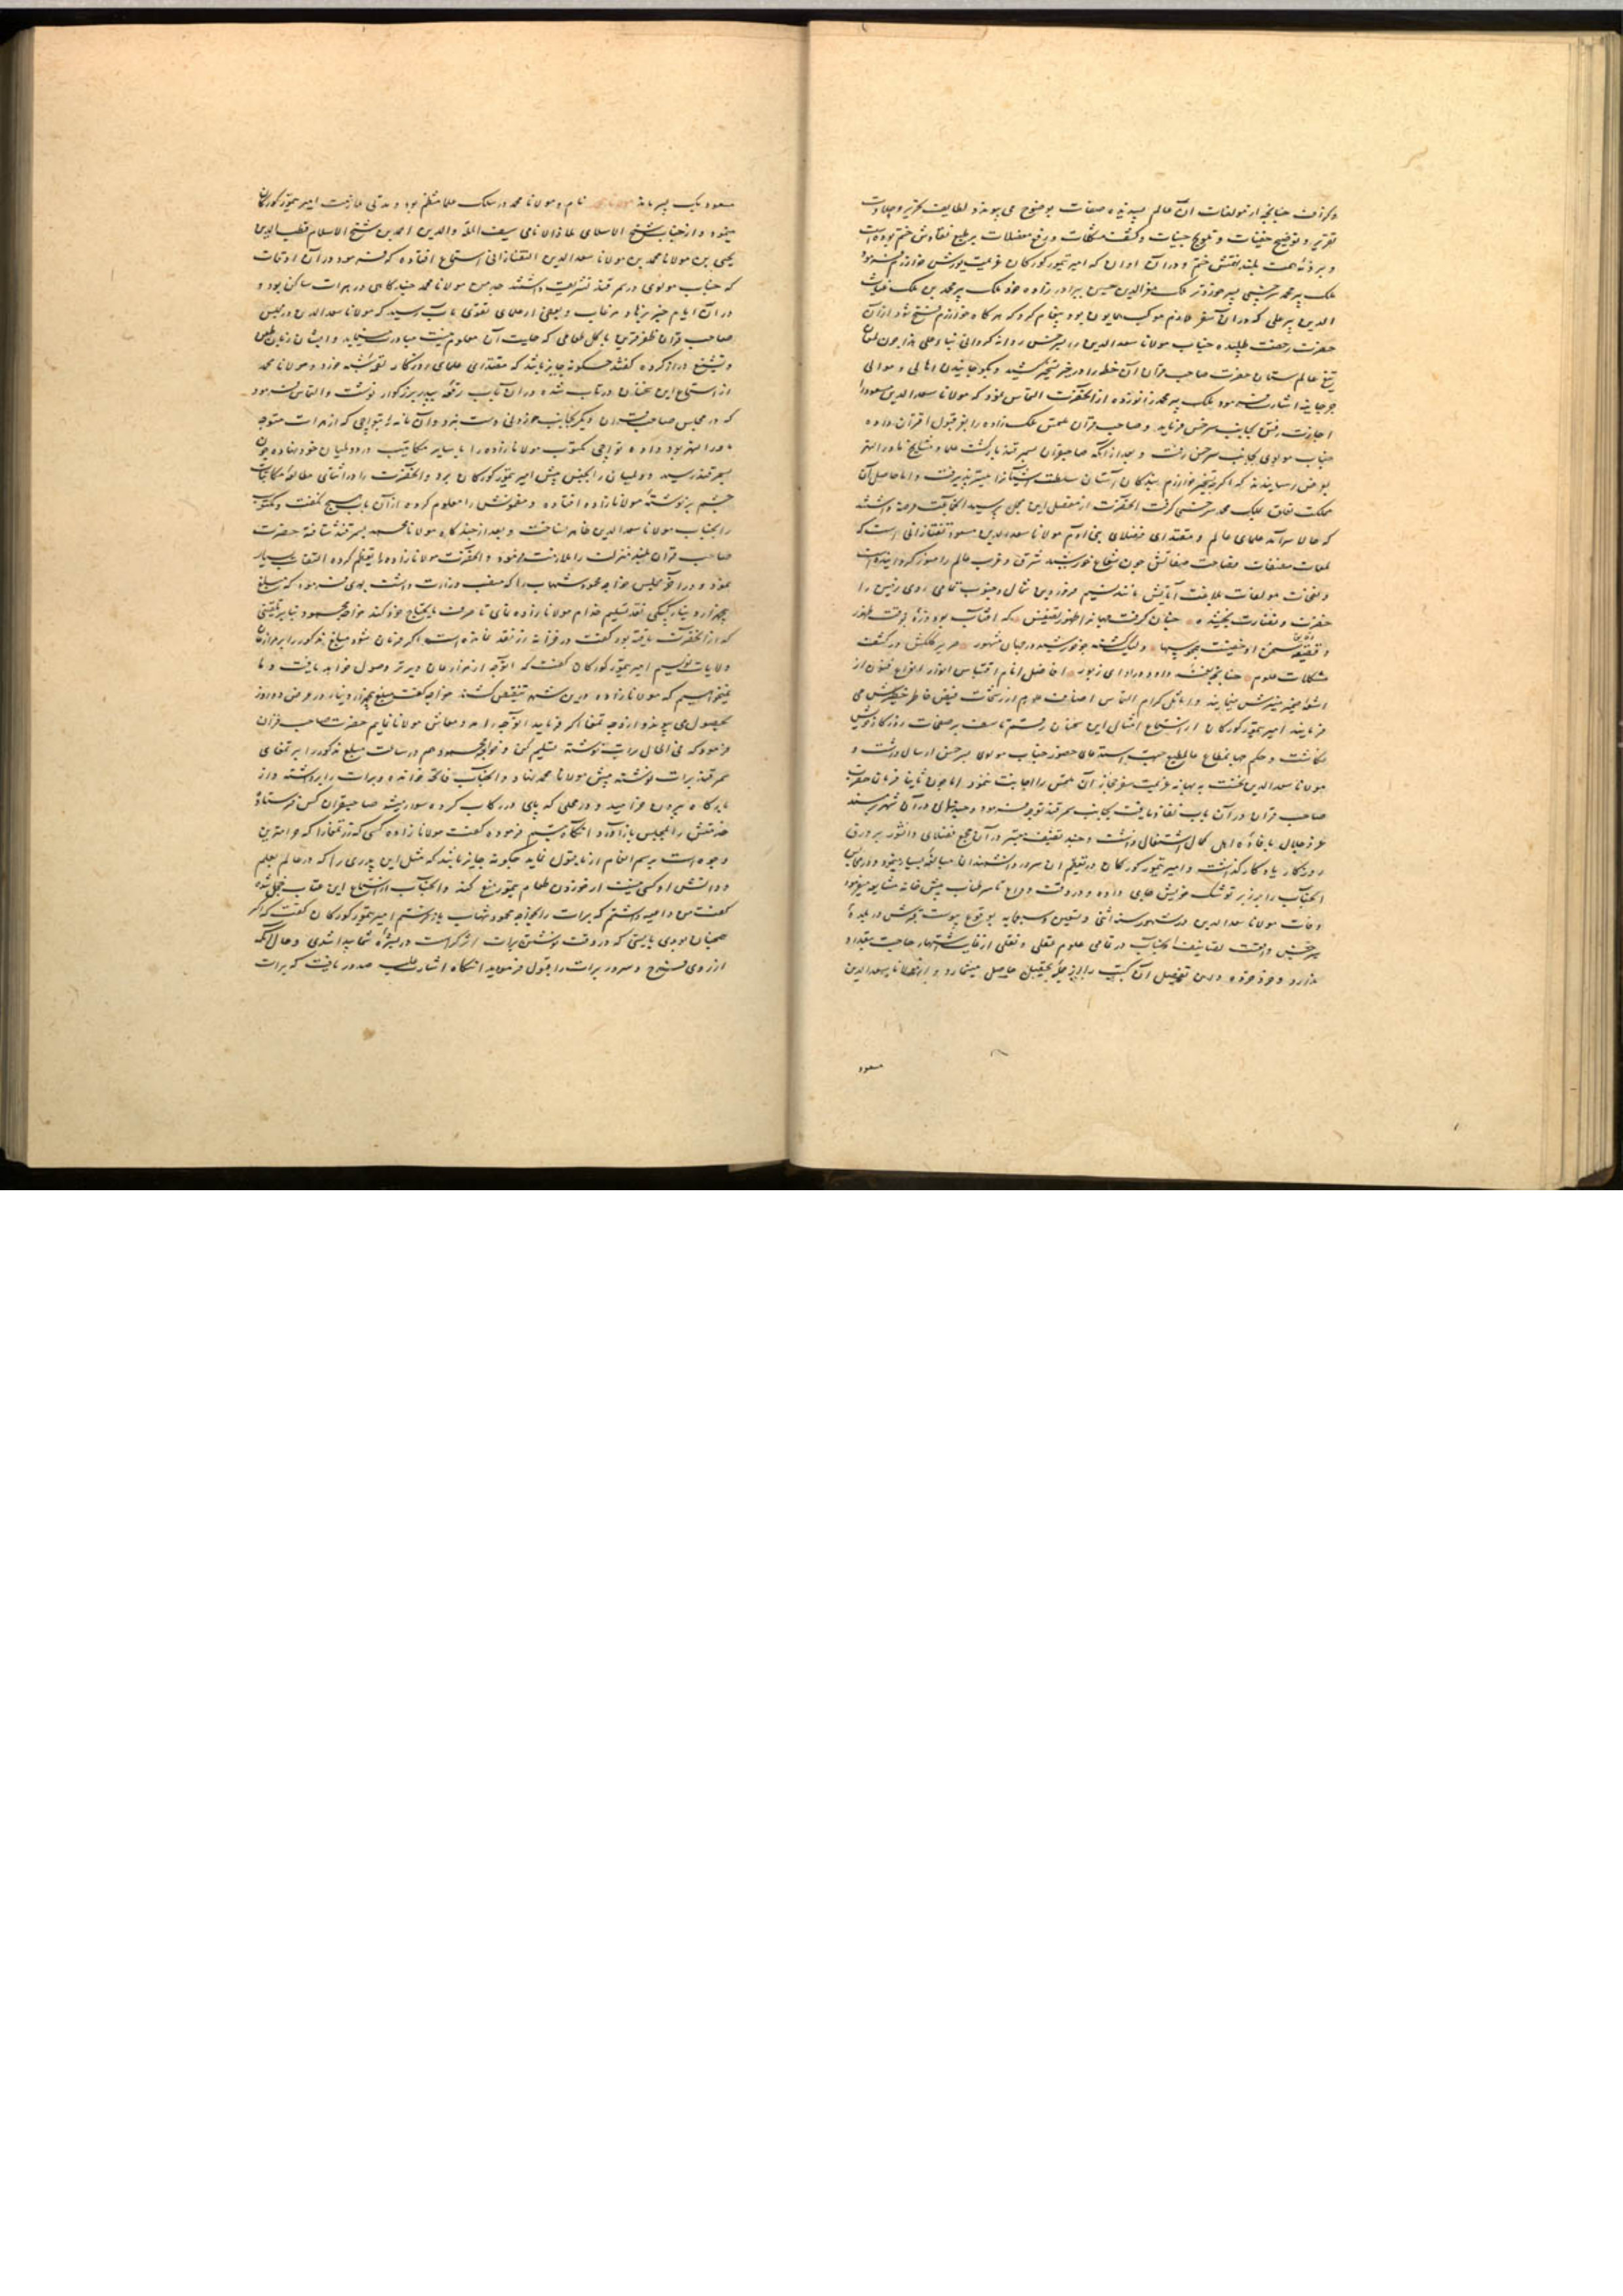 و کرزت چنانچه از مولفات آن عالم پسندیده صفات بوضوح می پیوندد لطایف تحریر و
تقریر و توضیح خفیات و تلویح جنیات و کشف مشکلات و رفع معضلات بر طبع نقادش ختم بوده است
و بر ذمه همت بلند نقش ختم و در آن اوان که امیر تیمور کورکان عزیمت یورش خوارزم فرمود
ملک پیر محمد سرخسی پسر خوردتر ملک معز الدین حسین برادر زاده خود ملک پیر محمد بن ملک غیاث
الدین پیر علی که در آن سفر ملازم موکب همایون بود پیغام کرد که هر کاه خوارزم فتح شود از آن
حضرت رخصت طلبیده جناب مولانا سعد الدین را بسرخس روانه کردانی بنا و علی هذا چون لمعان
تیغ عالم ستان حضرت صاحب قران آن خطه را در حیز تسخیر کشید و بکوچانیدن اهالی و موالی
جرجانیه اشارت فرمود ملک پیر محمد زانو زده از آنحضرت التماس نمود که مولانا سعد الدین مسعود را
اجازت رفتن بجانب سرخس فرماید و صاحب قران ملتمس ملک زاده را بعز قبول اقتران داده
جناب مولوی بجانب سرخس رفت و بعد از آنکه صاحبقران بسمرقند بازکشت علما و مشایخ ماوراء النهر
بعرض رسانیدند که اکرچه تسخیر خوارزم بندکان آستان سلطنت آشیانرا میسر پذیرفت و اما حاصل آن
مملکت تعلق بملک محمد سرخسی کرفت آنحضرت از مفصل این مجمل پرسید آنجماعت عرضه داشتند
که حالا سرآمد علمای عالم و مقتدای فضلای بنی آدم مولانا سعد الدین مسعود تفتازانی است که
لمعات مصنفات فصاحت صفاتش چون شعاع خورشید شرق و غرب عالم را منور کردانیده است
و نفحات مولفات بلاغت آیاتش مانند نسیم فروردین شمال و جنوب تمامی روی زمین را
خضرت و نضارت بخشیده چنان کرفت جهانرا ظهور تصنیفش که آفتاب بود ذره بوقت ظهور
دقیقه سخن او و لیک کشته چو خورشید در جهان مشهور صریر کلکش در کشف
مشکلات علوم چنانچه نغمه داود در ادای زبور افاضل انام اقتباس انوار انواع فنون از
اشعه ضمیر منیرش مینمایند و اماثل کرام التماس اصناف علوم از رشحات فیض خاطر خطیرش می
فرمایند امیر تیمور کورکان از استماع امثال این سخنان رقم تاسف بر صفحات روزکار خویش
نکاشت و حکم جهانمطاع عالم مطیع جهت استدعای حضور جناب مولوی بسرخس ارسال داشت و
مولانا سعد الدین نخست به بهانه عزیمت سفر حجاز آن ملتمس را اجابت ننمود اما چون ثانیا فرمان حضرت
صاحب قران در آن باب نفاذ یافت بجانب سمرقند توجه فرمود و چند سال در آن شهر بر مسند
عز و جلال بافاده اهل کمال اشتغال داشت و چند تصنیف معتبر در آن مجمع فضلای دانشور بر ورق
روزکار یادکار کذاشت و امیر تیمور کورکان در تعظیم آن سرور دانشمندان مبالغه بسیار مینمود و در مجالس
آنجناب را بر زبر توشک خویش جای داده و در وقت وداع تا سر طناب پیش خانه مشایعه میفرمود
وفات مولانا سعد الدین در شهور سنه اثنی و تسعین و سبعمایه بوقوع پیوست قبرش در بلده
سرخس واقعست تصانیف آنجناب در تمامی علوم عقلی و نقلی از غایت اشتهار حاجت بتعداد
ندارد و خرد خرده دان تفصیل آن کتب را از حیز تحصیل حاصل میشمارد و از مولانا سعد الدین
مسعود
مسعود یک پسر ماند مولانا محمد نام و مولانا محمد در سلک علما منتظم بود و مدتی ملازمت امیر تیمور کورکان
مینمود و از جناب شیخ الاسلامی ملاذ الانامی سیف المله والدین احمد بن شیخ الاسلام قطب الدین
یحیی بن مولانا محمد بن مولانا سعد الدین التفتازانی استماع افتاده که فرمود در آن اوقات
که جناب مولوی در سمرقند تشریف داشتند جد من مولانا محمد چندکاهی در هرات ساکن بود و
در آن ایام خبر بنا و مرغاب و بعضی از علمای تقوی مآب رسید که مولانا سعد الدین در مجلس
صاحب قران ظفر قرین باکل طعامی که حلیت آن معلوم نیست مبادرت مینماید و ایشان زبان طعن
و تشنیع دراز کرده کفتند چکونه جایز باشد که مقتدای علمای روزکار لقمه شبهه خورد و مولانا محمد
از استماع این سخنان در تاب شده در آن باب رقعه بپدر بزرکوار نوشت و التماس فرمود
که در مجلس صاحب قران دیکر بجانب خوردنی دست نبرد و آن نامه را بتواجی که از هرات متوجه
ماوراء النهر بود داده تواچی مکتوب مولانا زاده را با سایر مکاتیب در دولمیان خود نهاده چون
بسمرقند رسید دولمیان را بجنس پیش امیر تیمور کورکان برد و آنحضرت را در اثنای مطالعه مکاتبات
چشم بر نوشته مولانا زاده افتاده و مضمونش را معلوم کرده از آن باب هیچ نکفت و مکتوب
را بجناب مولانا سعد الدین ظاهر نساخت و بعد از چندکاه مولانا محمد بسمرقند شتافته حضرت
صاحب قران بلند منزلت را ملازمت نمود و آنحضرت مولانا زاده را تعظیم کرده التفات بسیار
نمود و در آخر مجلس خواجه محمود شهاب را که منصب وزارت داشت بوی فرمود که مبلغ
پنجهزار دینار کپکی نقد تسلیم خدام مولانا زاده نمای تا صرف مایحتاج خود کند خواجه محمود بنا بر تلقینی
که از آنحضرت یافته بود کفت در خزانه زر نقد نمانده است اکر فرمان شود مبلغ مذکور را بر
ولایات نویسم امیر تیمور کورکان کفت که آنوجه از هزارجات دیرتر وصول خواهد یافت و ما
نمیخواهیم که مولانا زاده در این شهر تنقیص کشند خواجه کفت مبلغ پنجهزار دینار در عرض ده روز
بحصول می پیوندد از وجه تمغا اکر فرماید آنوجه را مدد معاش مولانا نمایم حضرت صاحب قران
فرمود که فی الحال برات نوشته تسلیم کن و خواجه محمود هم در ساعت مبلغ مذکور را بر تمغای
سمرقند برات نوشته پیش مولانا محمد نهاد و آنجناب فاتحه خوانده و برات را برداشته و از
بارکاه بیرون خرامید و در محلی که پای در رکاب کرده سوار میشد صاحبقران کس فرستاده
خدمتش را بمجلس باز آورد آنکاه تبسم فرموده کفت مولانا زاده کسی که زر تمغا را که حرامترین
وجوه است برسم انعام از ما قبول نماید چکونه جایز باشد که مثل این پدری را که در عالم بعلم
و دانش او کسی نیست از خوردن طعام تیمور منع کند و آنجناب از استماع این عتاب خجل شده
کفت من داعیه داشتم که برات را بخواجه محمود شهاب باز فرستم امیر تیمور کورکان کفت که اکر
همچنان بودی بایستی که در وقت نوشتن برات اثر کراهت در بشره شما پیدا شدی و حال آنکه
از روی فرح و سرور برات را قبول فرمودید آنکاه اشارت علیه صدور یافت که برات